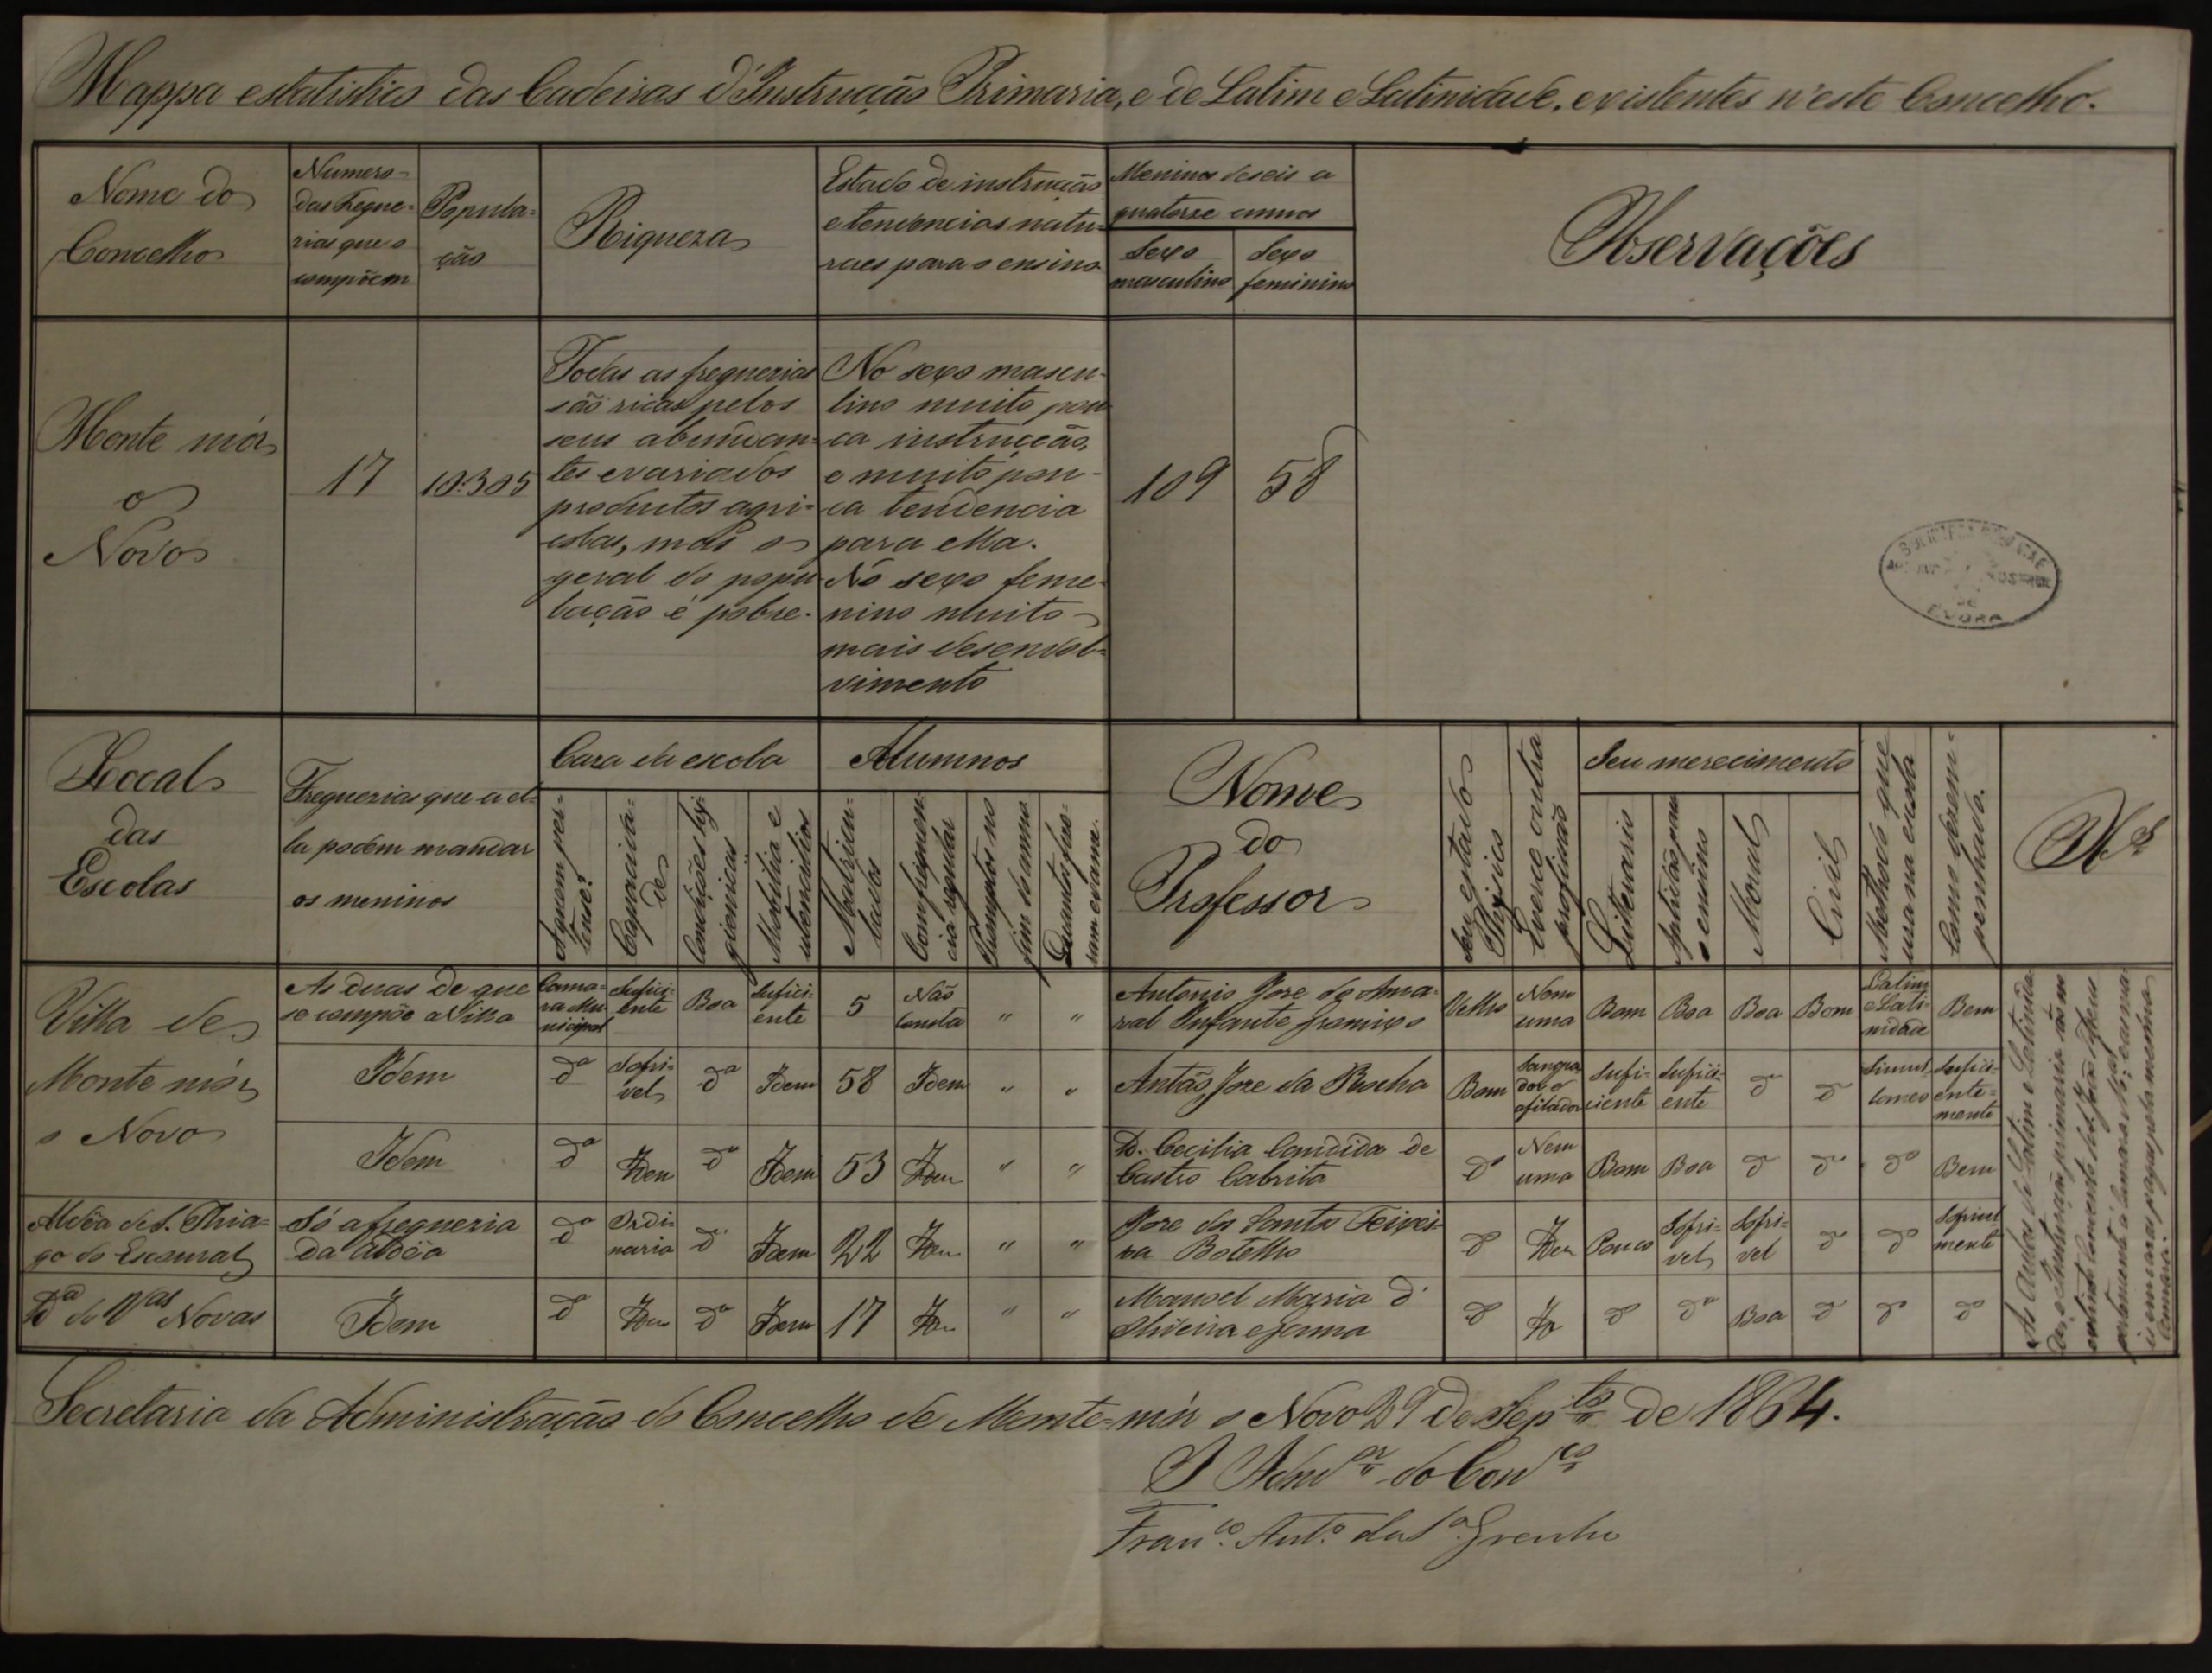 Mappa estatistico das Cadeiras d'Instrucção Primaria, e de Latim e Latinidade, existentes n'este Concelho.
Nome do
Concelho
Numero
das Fregue-
zias que o
compõem
Popula-
ção
Riqueza
Estado de instrucção
e tendencias natu-
raes para o ensino
Meninos de seis a
quatorze annos
Sexo
masculino
Sexo
feminino
Observações
Monte mór
o
Novo
17
10:305
Todas as freguezias
são ricas pelos
seus abundan-
tes e variados
productos agri-
colas, mas o
geral da popu-
lação é pobre.
No sexo mascu-
lino muito pou
ca instrucção,
e muito pou-
ca tendencia
para ella.
No sexo feme-
nino muito
mais desenvol-
vimento
109
58
EVORA
Local
das
Escolas
Freguezias que a el-
la podem mandar
os meninos
Caza da escola
A quem per-
tence?
Capacida-
de
Condições hy-
gienicas
Mobilia e
utencilios
Alumnos
Matricu-
lados
Com frequen-
cia regular
Promptos no
fim do anno
Quantos fize-
ram exame.
Nome
do
Professor
Seu estado
Physico
Exerce outra
profissão
Seu merecimento
Litterario
Aptidão para
o ensino
Moral
Civil
Methodo que
usa na escola
Como desem-
penhado.
Villa de
Monte mór
o Novo
As duas de que
se compõe a Villa
Cama-
ra Mu-
nicipal
Sufici-
ente
Boa
Sufici-
ente
5
Não
consta
"
"
Antonio Jose do Ama-
ral Infante
Velho
Nem
uma
Bom
Boa
Boa
Bom
Latim
e Lati-
nidade
Bem
Idem
dª
Sofri-
vel
dª
Idem
58
Idem
"
"
Antão Jose da Rocha
Bom
Sangra
dor e
afilador
Sufi-
ciente
Sufici-
ente
dº
dº
Simul-
taneo
Sufici-
ente-
mente
Idem
dª
Idem
dª
Idem
53
Idem
"
"
D. Cecilia Candida de
Castro Cabrita
dº
Nem
uma
Bom
Boa
dº
dº
dº
Bem
Aldêa de S. Thia-
go do Escoural
Só a freguezia
da Aldêa
dª
Ordi-
naria
dª
Idem
22
Idem
"
"
Jose dos Santos Teixei-
ra Botelho
dº
Idem
Pouco
Sofri-
vel
Sofri-
vel
dº
dº
mente
Dª de Vas Novas
Idem
dª
Idem
dª
Idem
17
Idem
"
"
Manoel Maria d'
Oliveira e Gama
dº
Id
dº
dª
Boa
dº
dº
dº
As Aulas de Latim e Latinida-
de, e Instrucção primaria são no
pertencente á Camara
pagas pela mesma
Camara.
Secretaria da Administração do Concelho de Monte-mór o Novo 29 de Septo de 1864.
O Admor do Conco
Franco. Anto. da Sa Grenho